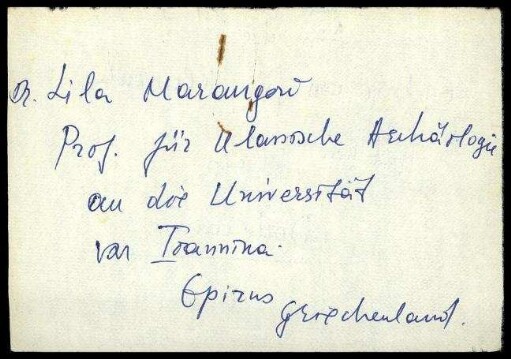 Dr. Lila Marangou
Prof. für Klassische Archäologie
an die Universität
von Ioannina.
Epirus
Griechenland.